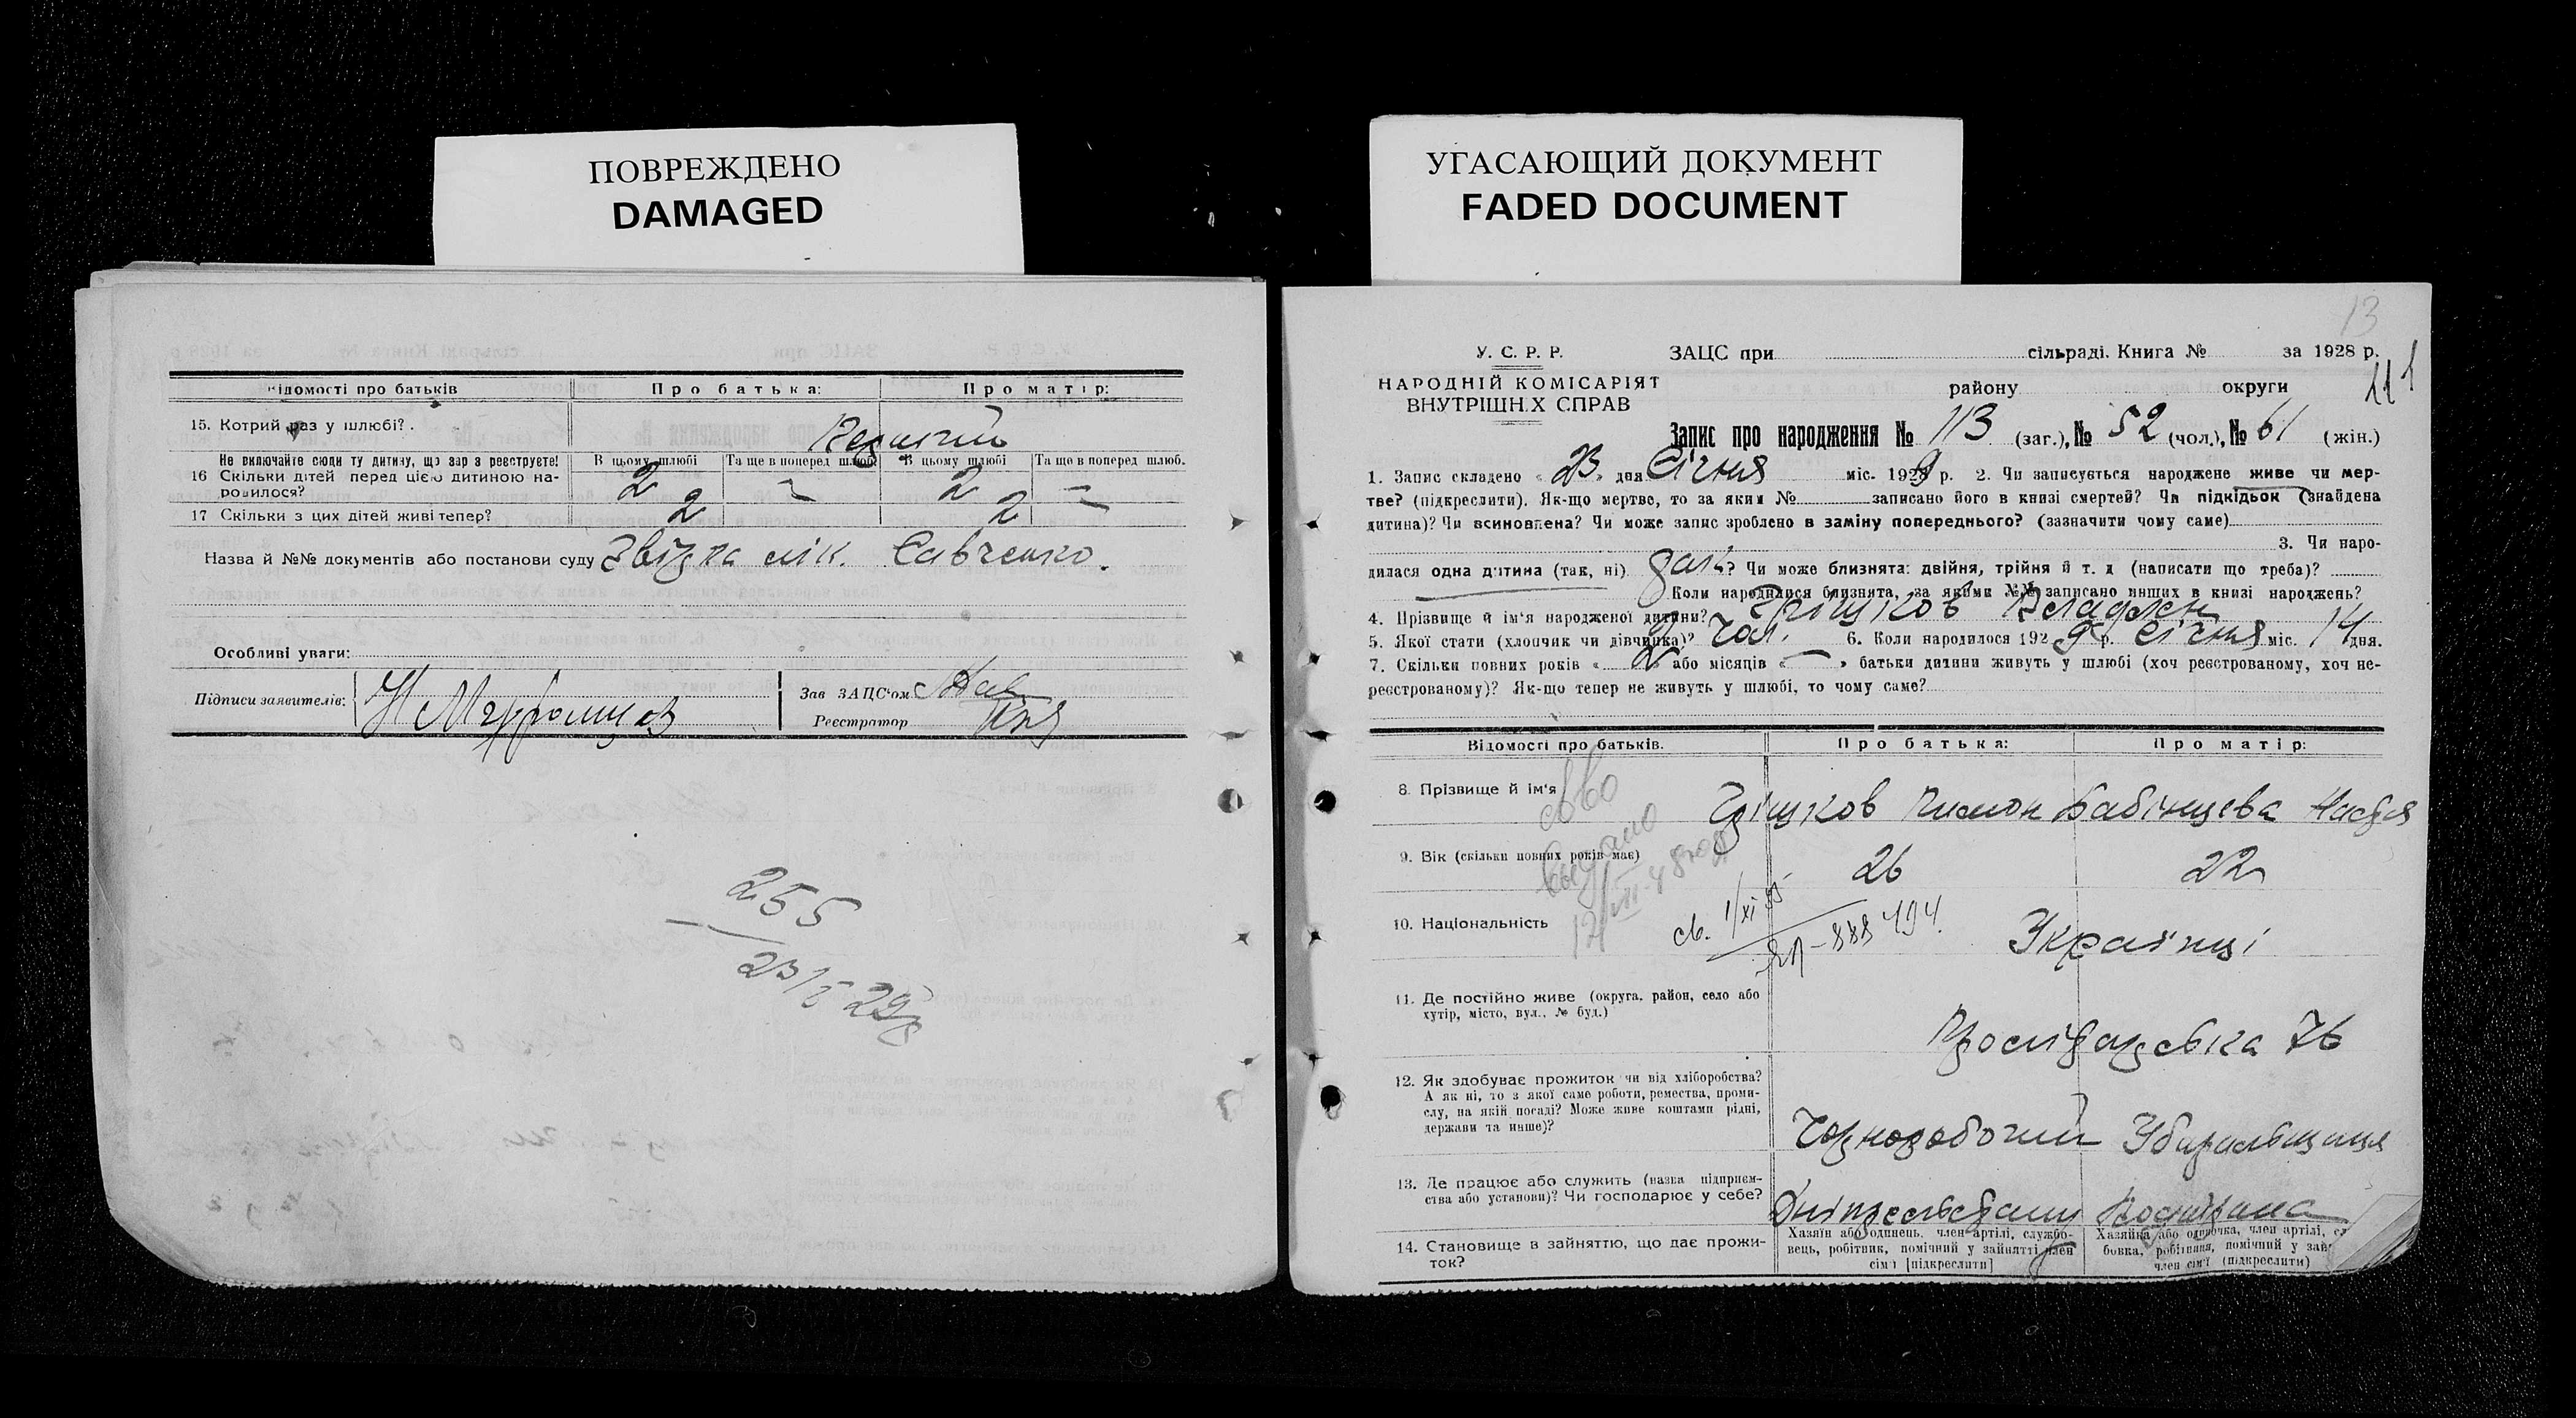 ПОВРЕЖДЕНО
DAMAGED
УГАСАЮЩИЙ ДОКУМЕНТ
FADED DOCUMENT
Відомості про батьків
Про батька:
Про матір:
15. Котрий раз у шлюбі?
Не включайте сюди ту дитину, що зараз реєструєте!
В цьому шлюбі
Та ще в поперед шлюб.
В цьому шлюбі
Та ще в поперед шлюб.
16 Скільки дітей перед цією дитиною на-
родилося?
2 — 2 —
17 Скільки з цих дітей живі тепер?
2 2
Назва й №№ документів або постанови суду Звідка лік. Савченко.
Особливі уваги:
Підписи заявителів:
Зав ЗАЦС'ом
Реєстратор
255
23/5 29
13
111
У. С. Р. Р.
ЗАЦС при сільраді. Книга № за 1928 р.
НАРОДНІЙ КОМІСАРІЯТ
ВНУТРІШНИХ СПРАВ
району округи
Запис про народження № 113 (заг.), № 52 (чол.), № 61 (жін.)
1. Запис складено « 23 » дня Січня міс. 1929 р. 2. Чи записується народжене живе чи мер-
тве? (підкреслити). Як-що мертве, то за яким № записано його в книзі смертей? Чи підкідьок (знайдена
дитина)? Чи всиновлена? Чи може запис зроблено в заміну попереднього? (зазначити чому саме)
3. Чи наро-
дилася одна дитина (так, ні) ? Чи може близнята: двійня, трійня й т. д (написати що треба)?
Коли народилися близнята, за якими №№ записано инших в книзі народжень?
4. Прізвище й ім'я народженої дитини? Грішков Владлен
5. Якої стати (хлопчик чи дівчинка)? Чол. 6. Коли народилося 1929 р. Січня міс. 14 дня.
7. Скільки повних років « 2 » або місяців « — » батьки дитини живуть у шлюбі (хоч реєстрованому, хоч не-
реєстрованому)? Як-що тепер не живуть у шлюбі, то чому саме?
Відомості про батьків.
Про батька:
Про матір:
8. Прізвище й ім'я
Грішков Тимон Бабінцева Настя
9. Вік (скільки повних років має)
26 22
10. Національність
Українці
св. 1/XI
11. Де постійно живе (округа, район, село або
хутір, місто, вул., № буд.)
76
12. Як здобуває прожиток чи від хліборобства?
А як ні, то з якої саме роботи, ремества, проми-
слу, на якій посаді? Може живе коштами рідні,
держави та инше)?
Чорноробочий Убиральщиця
13. Де працює або служить (назва підприєм-
ства або установи)? Чи господарює у себе?
14. Становище в зайняттю, що дає прожи-
ток?
Хазяїн або одинець, член артілі, службо-
вець, робітник, помічний у зайнятті член
сім'ї [підкреслити]
Хазяйка або одиночка, член артілі,
бовка, робітниця, помічний у зай
член сім'ї (підкреслити)